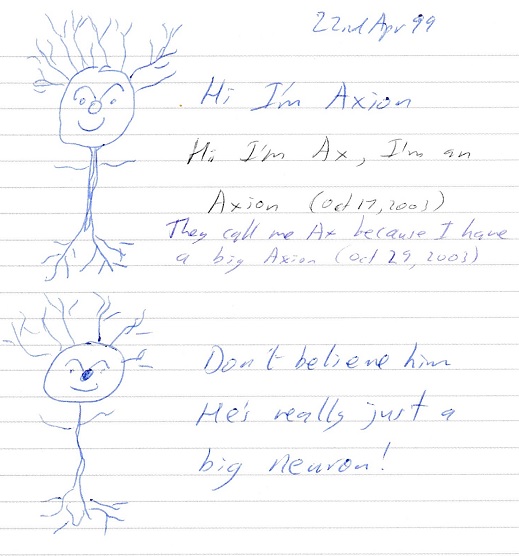 22nd Apr 99
Hi I'm Axion
Hi I'm Ax, I'm an
Axion (Oct 17, 2003)
They call me Ax because I have
a big Axion (Oct 29, 2003)
Don't believe him
He's really just a
big neuron!